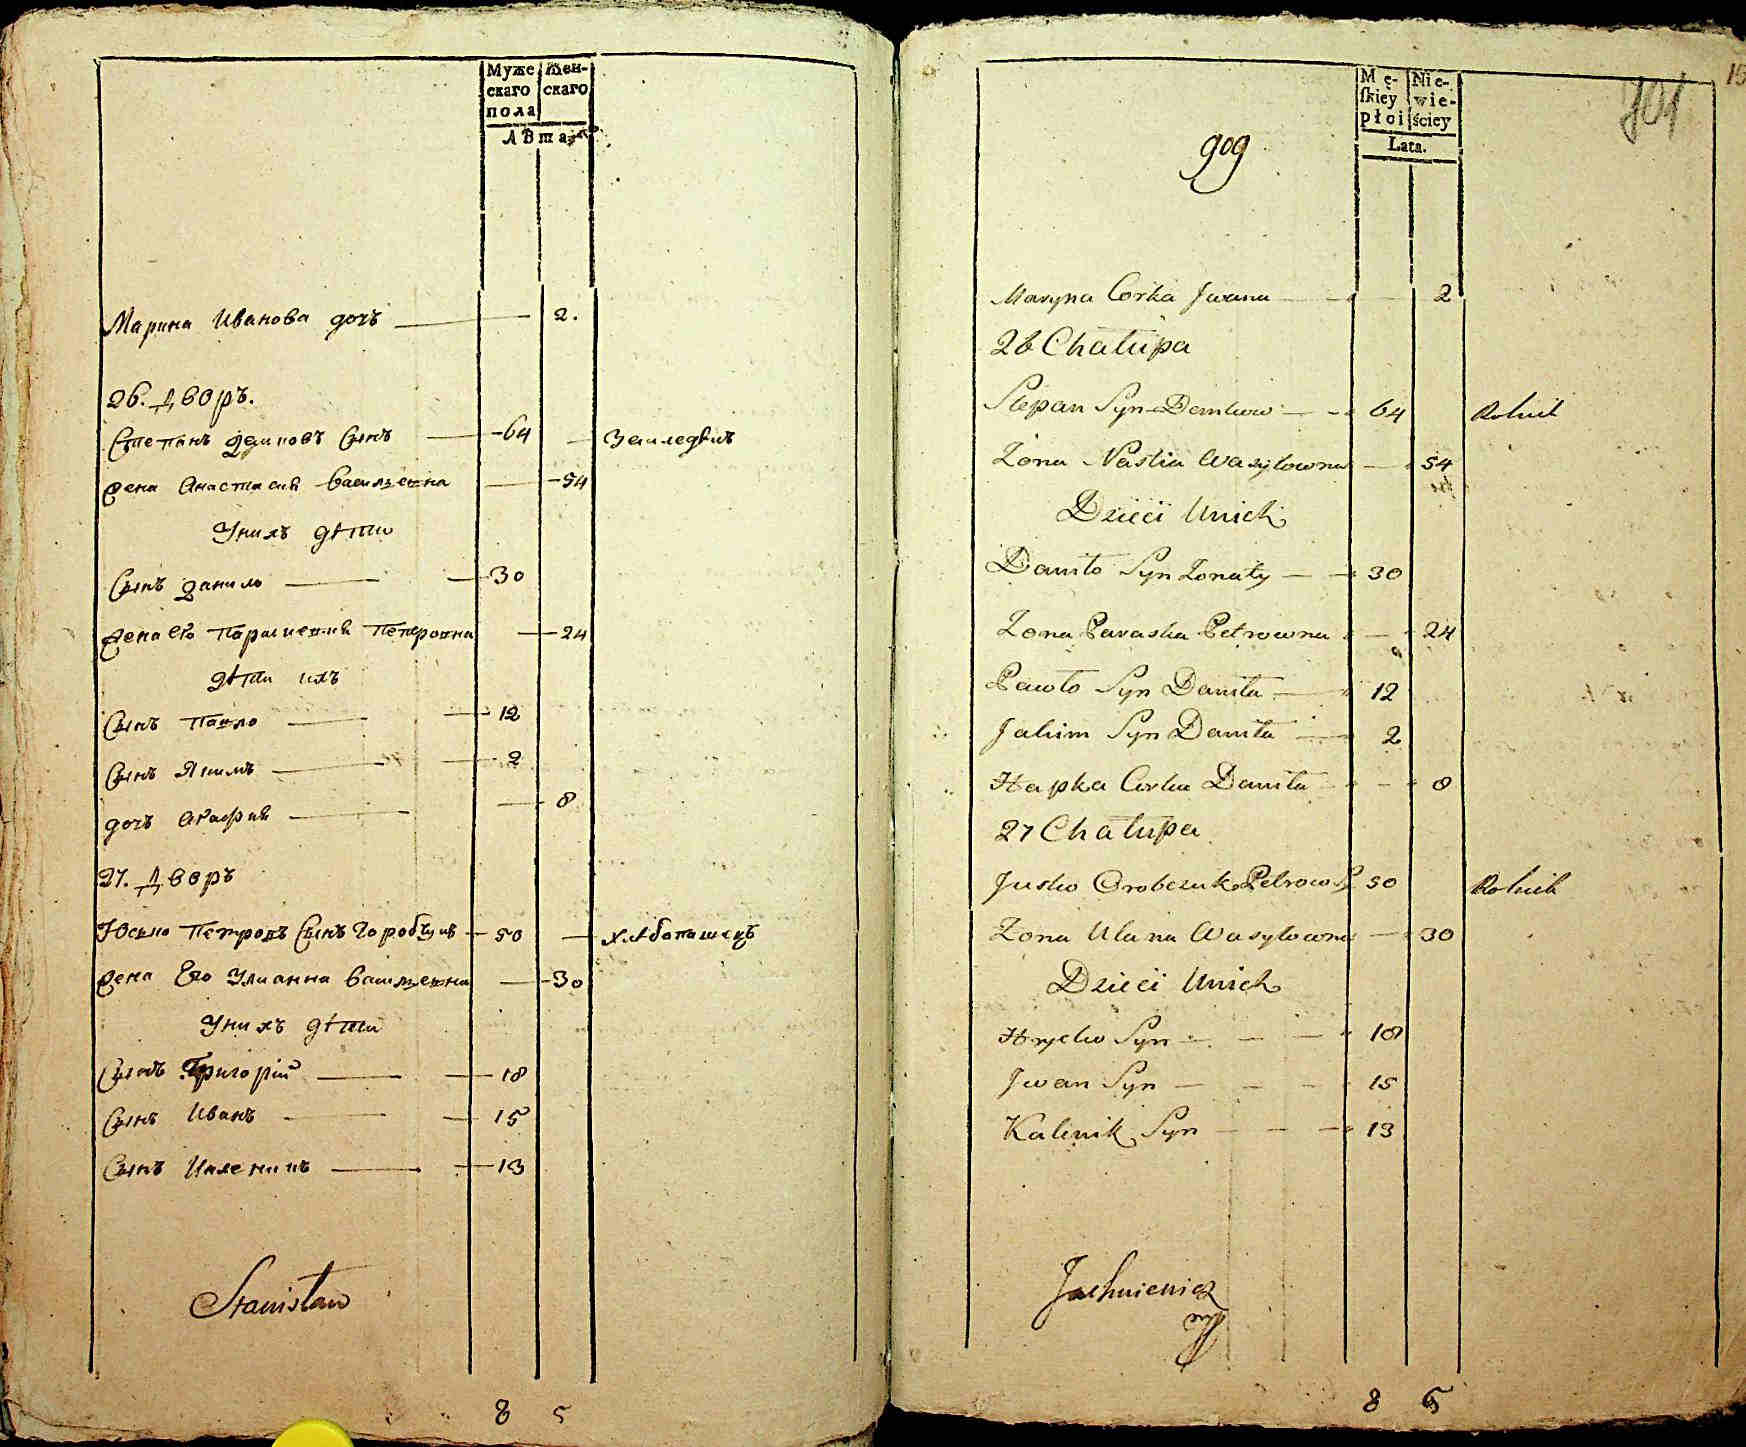 Муже
скаго
пола
Жен-
скаго
Лѣта
Марина Иванова дочь 2.
26. Дворъ.
Степанъ Демковъ Сынъ 64 Земледѣлъ
Жена Анастасия Васильевна 54
У нихъ дѣти
Сынъ Данило 30
Жена его Парасцевия Петровна 24
дѣти ихъ
Сынъ Павло 12
Сынъ Якимъ 2
дочь Агафия 8
27. Дворъ
Юсько Петровъ Сынъ Горобчукъ 50 хлѣбопашецъ
Жена Его Улианна Васильевна 30
У нихъ дѣти
Сынъ Григорій 18
Сынъ Иванъ 15
Сынъ Каленикъ 13
Stanisław
8 5
Mę-
ſkiey
płci
Nie-
wie-
ściey
Lata.
909
701
Maryna Corka Jwana 2
26 Chałupa
Stepan Syn Demkow 64 Rolnik
Zona Nastia Wasylowna 54
Dzieci Unich
Daniło Syn Zonaty 30
Zona Paraska Petrowna 24
Pawło Syn Daniła 12
Jakim Syn Daniła 2
Hapka Corka Daniła 8
27 Chałupa
Jusko Orobczuk Petrow S. 50 Rolnik
Zona Ulana Wasylowna 30
Dzieci Unich
Hryćko Syn 18
Jwan Syn 15
Kalinik Syn 13
Jachniewicz
mp
8 5